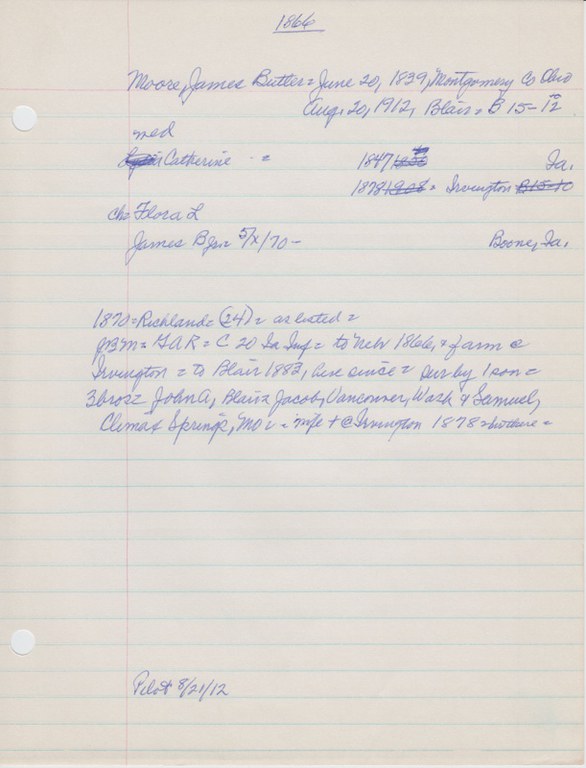 1866
Moore, James Butler = June 20, 1839, Montgomery Co Ohio
Aug. 20, 1912, Blair = B 15-12
med
Catherine = 1847 Ia.
1878 = Irvington
Ch = Flora L
James B Jr = 5/x/70 - Boone, Ia.
1870 = Richland = (24) = as listed =
JBM = GAR = C 20 Ia Inf = to Nebr 1866, + farm @
Irvington = to Blair 1883, here since = surv by 1 son =
3 bros = John A, Blair = Jacob, Vancouver, Wash & Samuel,
Climax Springs, Mo = wife + @ Irvington 1878 =
Pilot 8/21/12